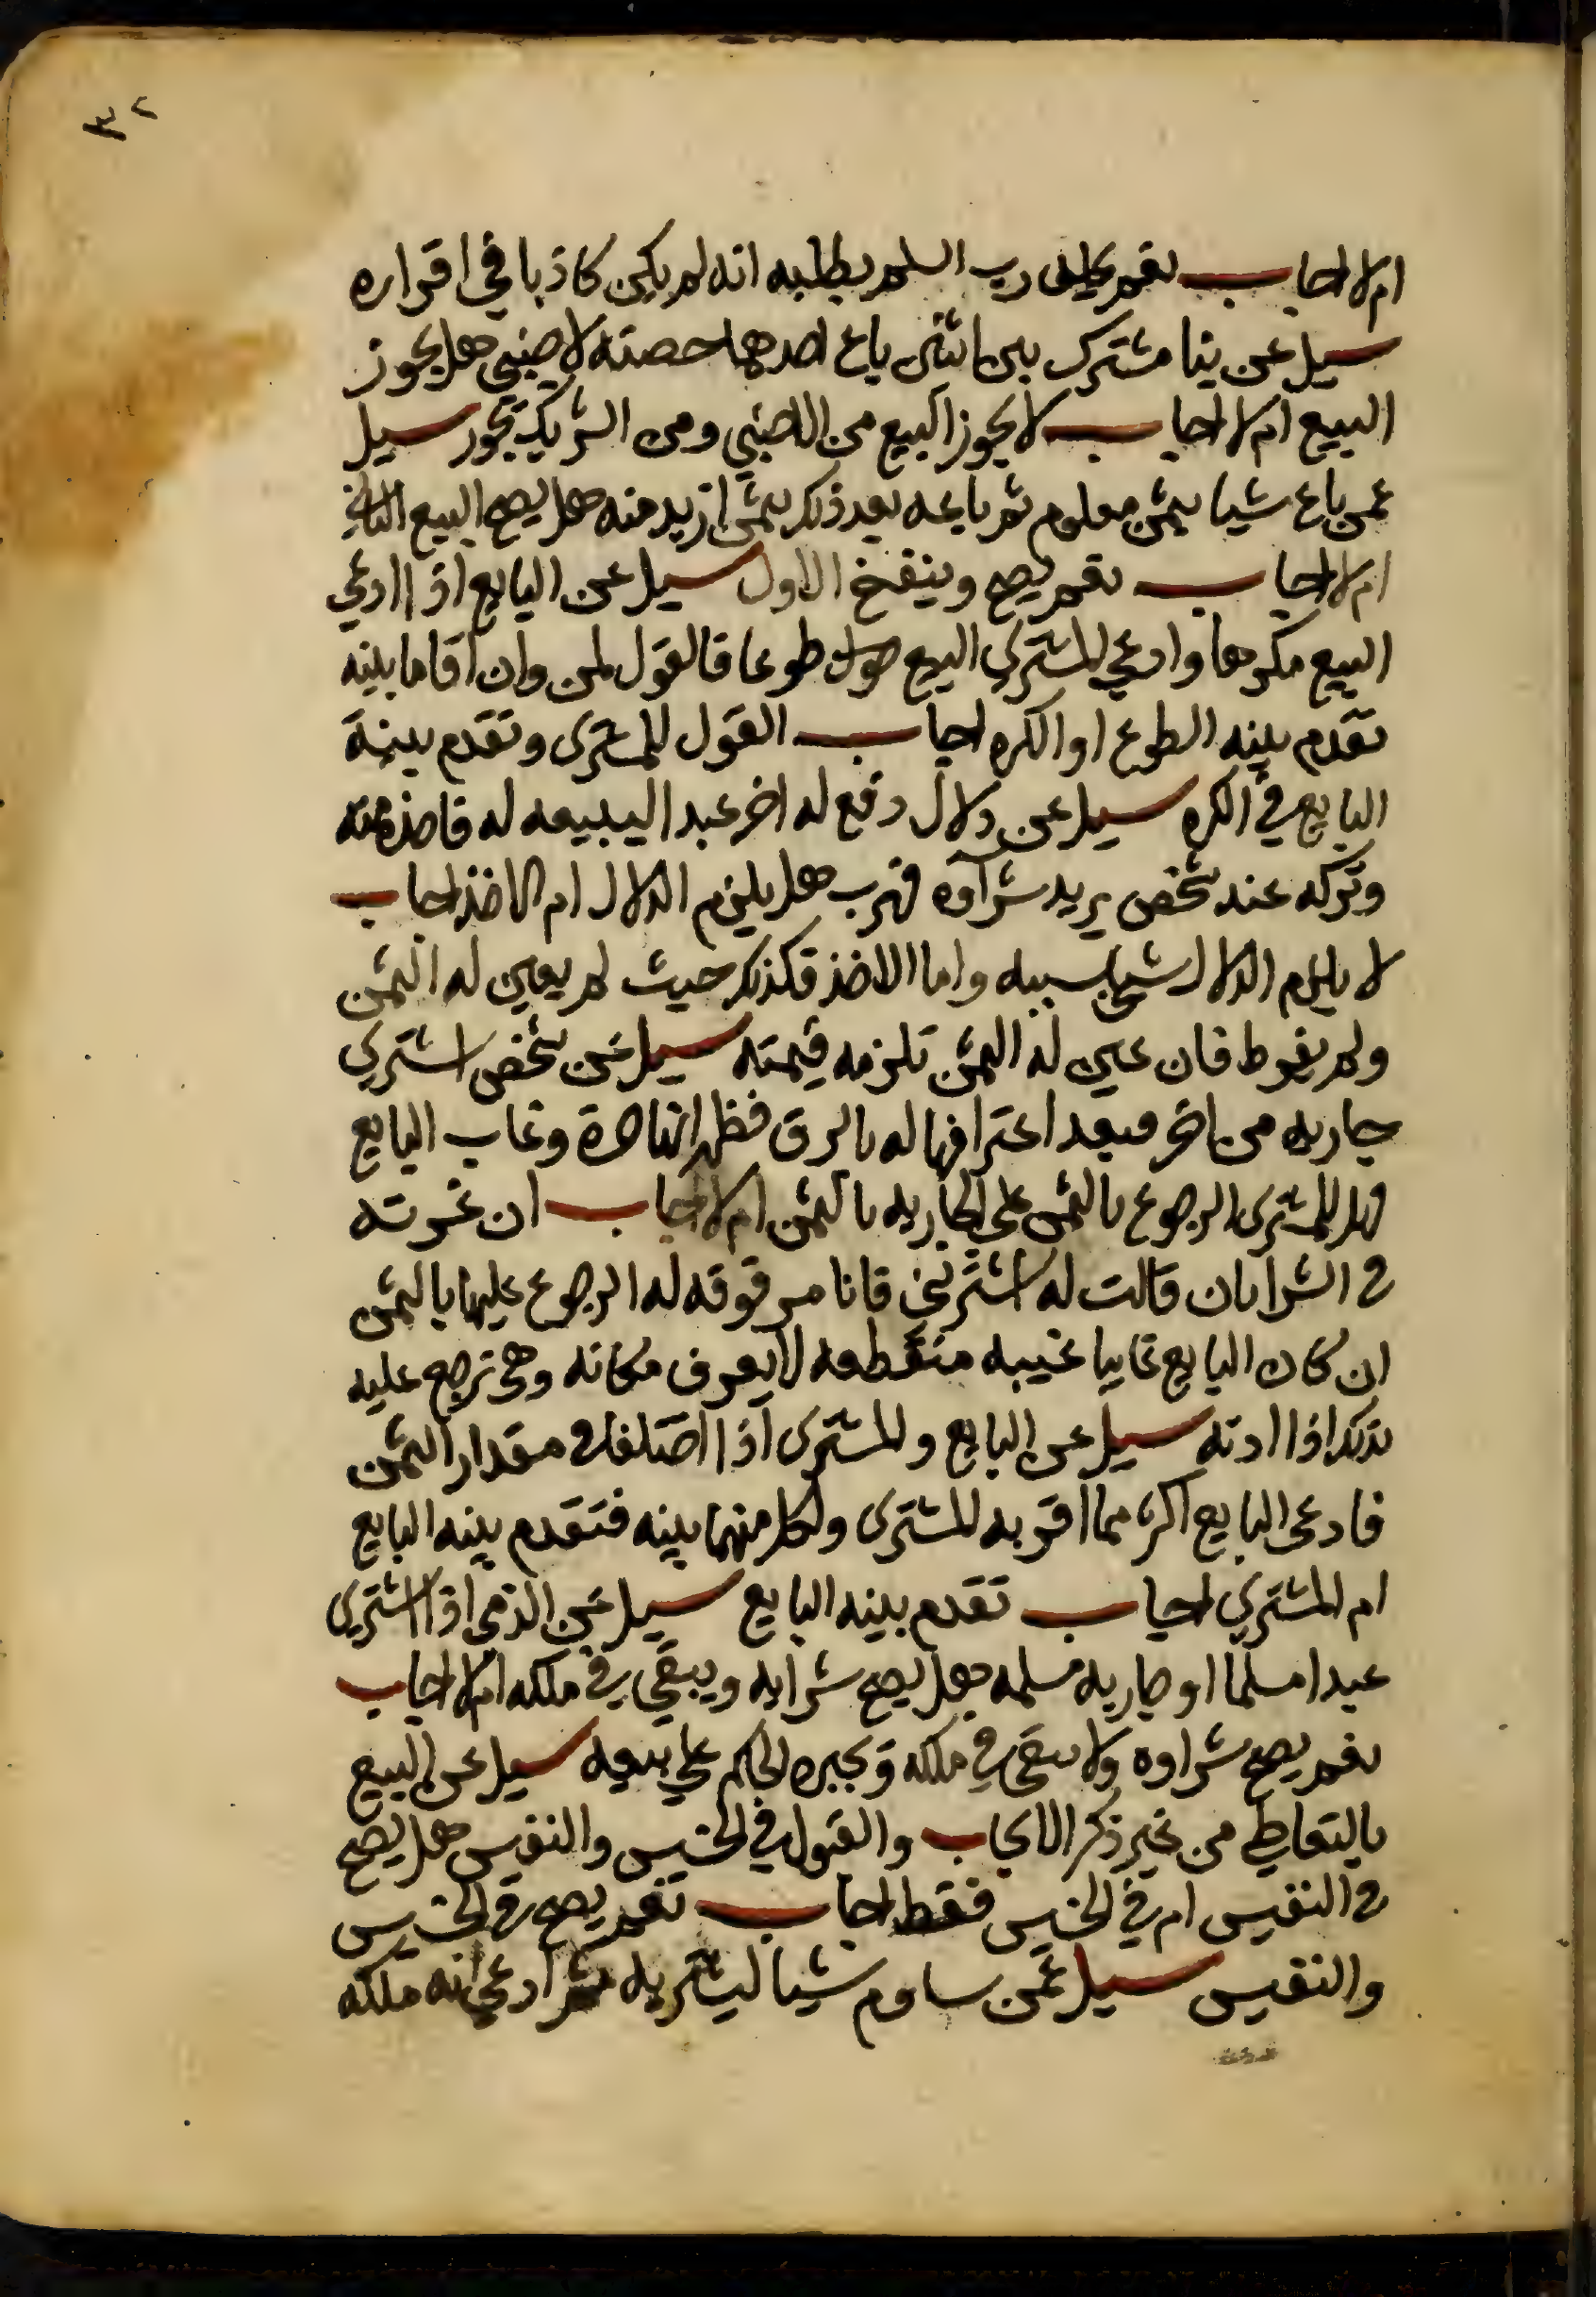 ٣٢
ام لا اجاب نعم يحلف رب السلم بطلبه انه لم يكن كاذبا في اقراره
سيل عن بنا مشترك بين اثنين باع احدهما حصته لاجنبي هل يجوز
البيع ام لا اجاب لا يجوز البيع من الاجنبي ومن الشريك يجوز سيل
عمن باع شيا بثمن معلوم ثم باعه بعد ذلك بثمن ازيد منه هل يصح البيع الثاني
ام لا اجاب نعم يصح وينفسخ الاول سيل عن البايع اذا ادعي
البيع مكرها وادعي المشتري البيع طوعا فالقول لمن وان اقاما بينه
تقدم بينه الطوع او الكره اجاب القول للمشتري وتقدم بينة
البايع في الكره سيل عن دلال دفع له اخر عبدا ليبيعه له فاخذه منه
وتركه عند شخص يريد شرآوه فهرب هل يلزم الدلال ام الاخذ اجاب
لا يلزم الدلال شي بسببه واما الاخذ فكذلك حيث لم يعين له الثمن
ولم يفرط فان عين له الثمن تلزمه قيمته سيل عن شخص اشتري
جاريه من اخر فبعد اعترافها له بالرق فظهر انها حرة وغاب البايع
فهل للمشتري الرجوع بالثمن علي الجاريه بالثمن ام لا اجاب ان غرته
في الشرا بان قالت له اشترني فانا مرقوقه له الرجوع عليها بالثمن
ان كان البايع غايبا غيبه منقطعه لا يعرف مكانه وهي ترجع عليه
بذلك اذا ادته سيل عن البايع والمشتري اذا اختلفا في مقدار الثمن
فادعي البايع اكثر مما اقر به المشتري ولكل منهما بينه فتقدم بينه البايع
ام المشتري اجاب تقدم بينه البايع سيل عن الذمي اذا اشتري
عبدا مسلما او جاريه مسلمه هل يصح شرايه ويبقي في ملكه ام لا اجاب
نعم يصح شراوه ولا يبقي في ملكه ويجبره الحاكم علي بيعه سيل عن البيع
بالتعاطي من غير ذكر الايجاب والقبول في الخسيس والنفيس هل يصح
في النفيس ام في الخسيس فقط اجاب نعم يصح في الخسيس
والنفيس سيل عمن ساوم شيا ليشتريه ثم ادعي انه ملكه